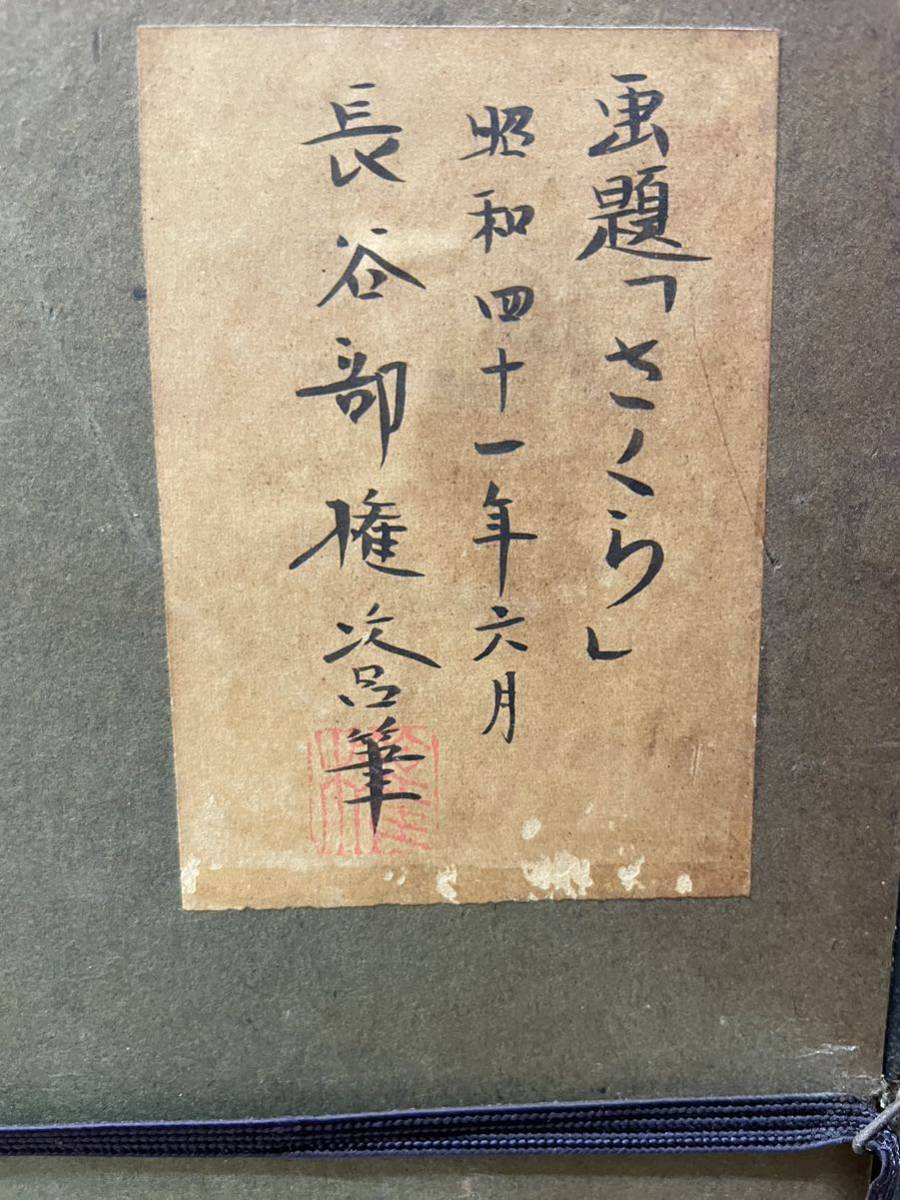 画題「さくら」
昭和四十一年六月
長谷部権次呂筆